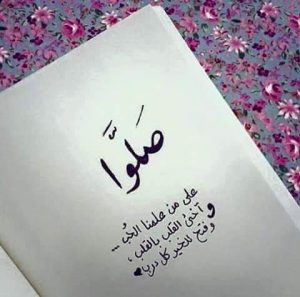 صلّوا
على من علمنا الحُب ...
و آخىٰ القلب بالقلب ،
وفتح للخير كل دربا